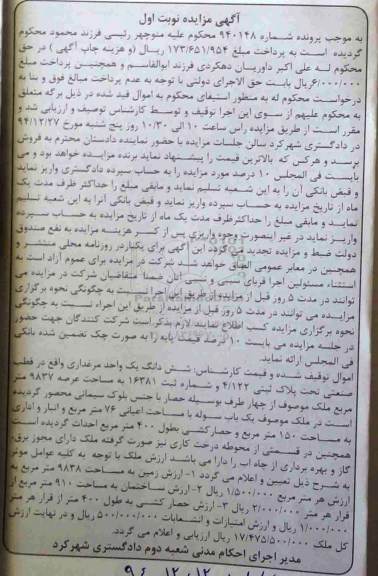 آگهی مزایده نوبت اول
به موجب پرونده شماره ۹۴۰۱۴۸ محکوم علیه منوچهر رئیسی فرزند محمود محکوم
گردیده است به پرداخت مبلغ ۱۷۳/۶۵۱/۹۵۴ ریال (و هزینه چاپ آگهی) در حق
محکوم له علی اکبر داوریان دهکردی فرزند ابوالقاسم و همچنین پرداخت مبلغ
۶/۰۰۰/۰۰۰ریال بابت حق الاجرای دولتی با توجه به عدم پرداخت مبالغ فوق و بنا به
درخواست محکوم له به منظور استیفای محکوم به اموال قید شده در ذیل برگه متعلق
به محکوم علیهم از سوی این اجرا توقیف و توسط کارشناس توصیف و ارزیابی شد و
مقرر است از طریق مزایده راس ساعت ۱۰ الی ۱۰/۳۰ روز پنج شنبه مورخ ۹۴/۱۲/۲۷
در دادگستری شهرکرد سالن جلسات مزایده با حضور نماینده دادستان محترم به فروش
برسد و هرکس که بالاترین قیمت را پیشنهاد نماید برنده مزایده خواهد بود و می
بایست فی المجلس ۱۰ درصد مورد مزایده را به حساب سپرده دادگستری واریز نماید
و قبض بانکی آن را به این شعبه تسلیم نماید و مابقی مبلغ را حداکثر ظرف مدت یک
ماه از تاریخ مزایده به حساب سپرده واریز نماید و قبض بانکی آنرا به این شعبه تسلیم
نماید و مابقی مبلغ را حداکثرظرف مدت یک ماه از تاریخ مزایده به حساب سپرده
واریز نماید در غیر اینصورت وجوه واریزی پس از کسر هزینه مزایده به نفع صندوق
دولت ضبط و مزایده تجدید می گردد این آگهی برای یکباردر روزنامه محلی منتشر و
همچنین در معابر عمومی الصاق خواهد شد شرکت در مزایده برای عموم آزاد است به
استثناء مسئولین اجرا اقربای سببی و نسبی آنان ضمنا متقاضیان شرکت در مزایده می
توانند در مدت ۵ روز قبل از مزایده از طریق این اجرا نسبت به چگونگی نحوه برگزاری
مزایده می توانند در مدت ۵ روز قبل از مزایده از طریق این اجراء نسبت به چگونگی
نحوه برگزاری مزایده کسب اطلاع نمایند لازم بذکر است شرکت کنندگان جهت حضور
در جلسه مزایده می بایست ۱۰ درصد قیمت پایه را به صورت چک تضمین شده بانکی
فی المجلس ارائه نماید.
اموال توقیف شده و قیمت کارشناس: شش دانگ یک واحد مرغداری واقع در قطب
صنعتی تحت پلاک ثبتی ۴/۱۲۲ و شماره ثبت ۱۶۳۸۱ به مساحت عرصه ۹۸۳۷ متر
مربع ملک موصوف از چهار طرف بوسیله حصار با جنس بلوک سیمانی محصور گردیده
است در ملک موصوف یک باب سوله با مساحت اعیانی ۷۶ متر مربع و انبار و اداری
به مساحت ۱۵۰ متر مربع و حصارکشی بطول ۴۰۰ متر مربع احداث گردیده است
همچنین در قسمتی از محوطه درخت کاری نیز صورت گرفته ملک دارای مجوز برق،
گاز و بهره برداری از چاه اب را دارا می باشد ارزش ملک با توجه به کلیه عوامل موثر
به شرح ذیل تعیین و اعلام می گردد ۱- ارزش زمین به مساحت ۹۸۳۸ متر مربع به
ارزش هر متر مربع ۱/۵۰۰/۰۰۰ ریال ۲- ارزش ساختمان به مساحت ۹۱۰ متر مربع از
قرار هر متر ۲/۰۰۰/۰۰۰ ریال ۳- ارزش حصار کشی به طول ۴۰۰ متر از قرار هر متر
۱/۰۰۰/۰۰۰ ریال و ارزش امتیازات و انشعابات ۵۰۰/۰۰۰/۰۰۰ ریال و در نهایت ارزش
کل ملک ۱۷/۴۷۵/۵۰۰/۰۰۰ ریال ارزیابی و اعلام می گردد.
مدیر اجرای احکام مدنی شعبه دوم دادگستری شهرکرد